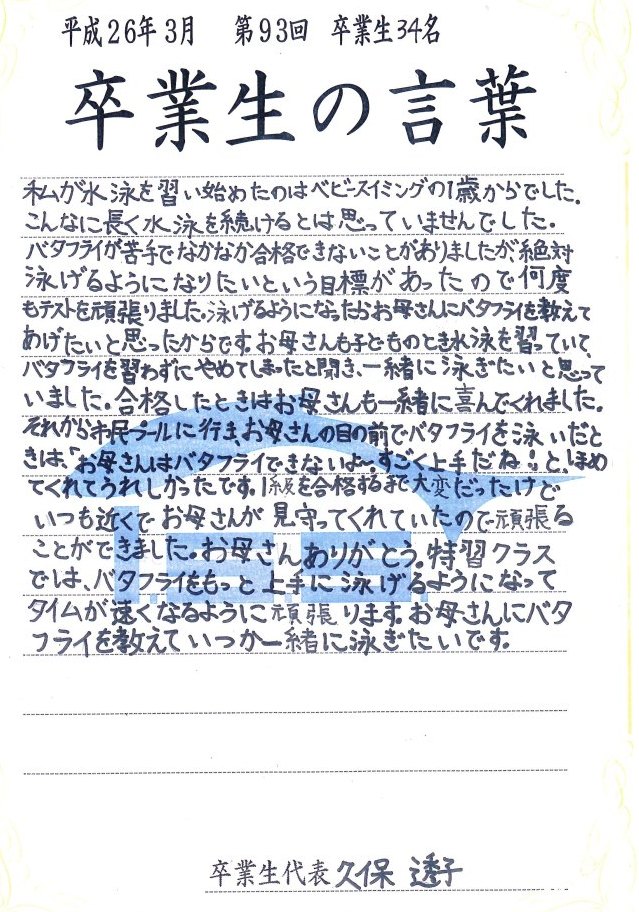 平成26年3月　第93回　卒業生34名
卒業生の言葉
私が水泳を習い始めたのはベビースイミングの1歳からでした。
こんなに長く水泳を続けるとは思っていませんでした。
バタフライが苦手でなかなか合格できないことがありましたが、絶対
泳げるようになりたいという目標があったので何度
もテストを頑張りました。泳げるようになったらお母さんにバタフライを教えて
あげたいと思ったからです。お母さんも子どものとき水泳を習っていて、
バタフライを習わずにやめてしまったと聞き、一緒に泳ぎたいと思って
いました。合格したときはお母さんも一緒に喜んでくれました。
それから市民プールに行き、お母さんの目の前でバタフライを泳いだと
きは、「お母さんはバタフライできないよ。すごく上手だね！」と、ほめ
てくれてうれしかったです。1級を合格するまで大変だったけど
いつも近くでお母さんが見守ってくれていたので頑張る
ことができました。お母さんありがとう。特習クラス
では、バタフライをもっと上手に泳げるようになって
タイムが速くなるように頑張ります。お母さんにバタ
フライを教えていつか一緒に泳ぎたいです。
卒業生代表 久保 透子